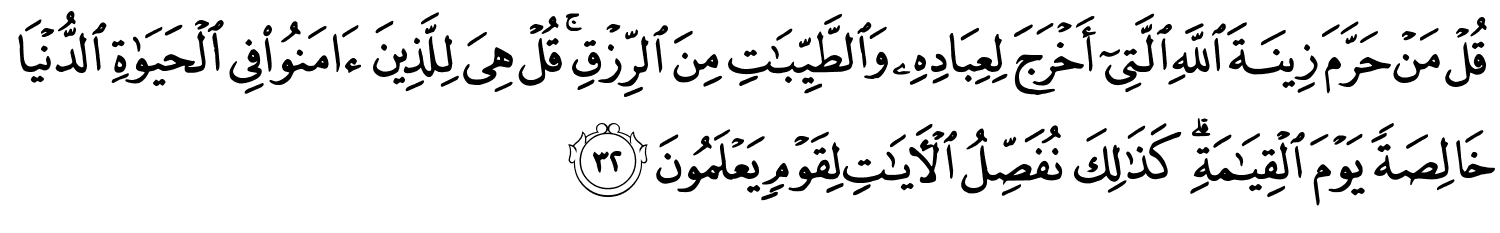 قُلْ مَنْ حَرَّمَ زِينَةَ ٱللَّهِ ٱلَّتِىٓ أَخْرَجَ لِعِبَادِهِۦ وَٱلطَّيِّبَـٰتِ مِنَ ٱلرِّزْقِ ۚ قُلْ هِىَ لِلَّذِينَ ءَامَنُوا۟ فِى ٱلْحَيَوٰةِ ٱلدُّنْيَا
خَالِصَةً يَوْمَ ٱلْقِيَـٰمَةِ ۗ كَذَٰلِكَ نُفَصِّلُ ٱلْـَٔايَـٰتِ لِقَوْمٍ يَعْلَمُونَ ٣٢